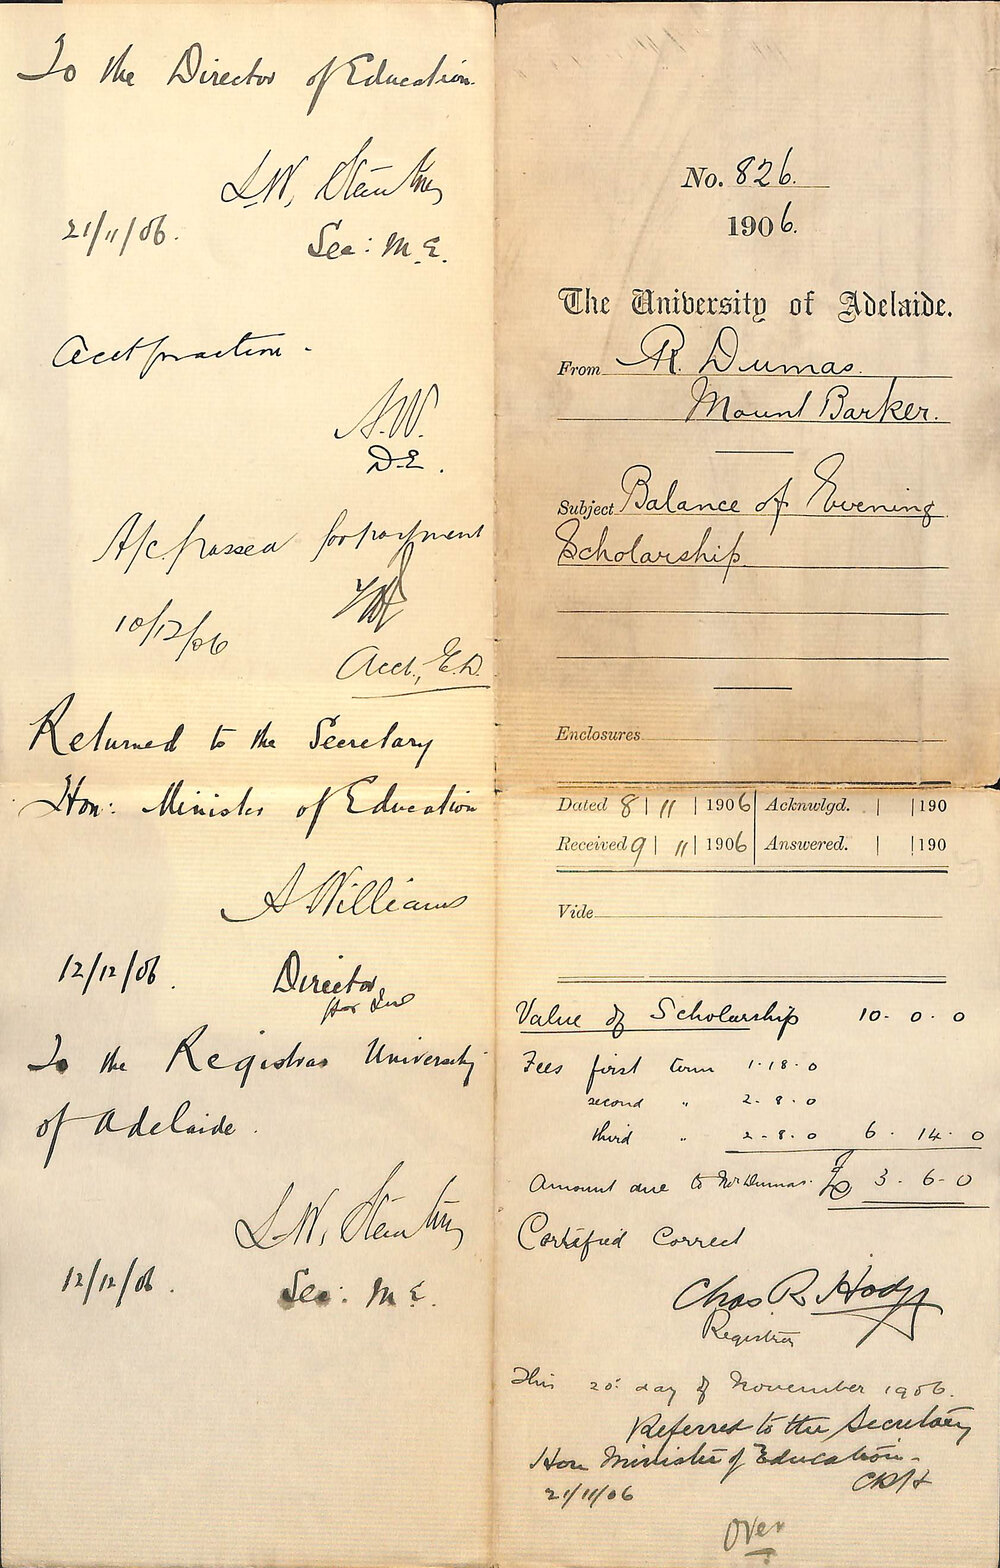 To the Director of Education.
L.W. Stanton
21/11/06.
Sec: M.E.
Acct for action -
A.W.
D.E.
A/c passed for payment
10/12/06
Acct., E.D.
Returned to the Secretary
Hon: Minister of Education
A Williams
12/12/06.
Director
To the Registrar University
of Adelaide.
L.W. Stanton
12/12/06.
Sec: M E.
No. 826.
1906.
The University of Adelaide.
From R. Dumas.
Mount Barker.
Subject Balance of Evening
Scholarship
Enclosures
Dated 8 | 11 | 1906 Acknwlgd. | | 190
Received 9 | 11 | 1906 Answered. | | 190
Vide
Value of Scholarship 10 - 0 - 0
Fees first term 1-18-0
second " 2-8-0
third " 2-8-0 6 - 14 - 0
Amount due to Mr Dumas £ 3 - 6 - 0
Certified Correct
Chas R. Hodge
Registrar
This 20: day of November 1906.
Referred to the Secretary
Hon Minister of Education -
CRH
21/11/06
Over